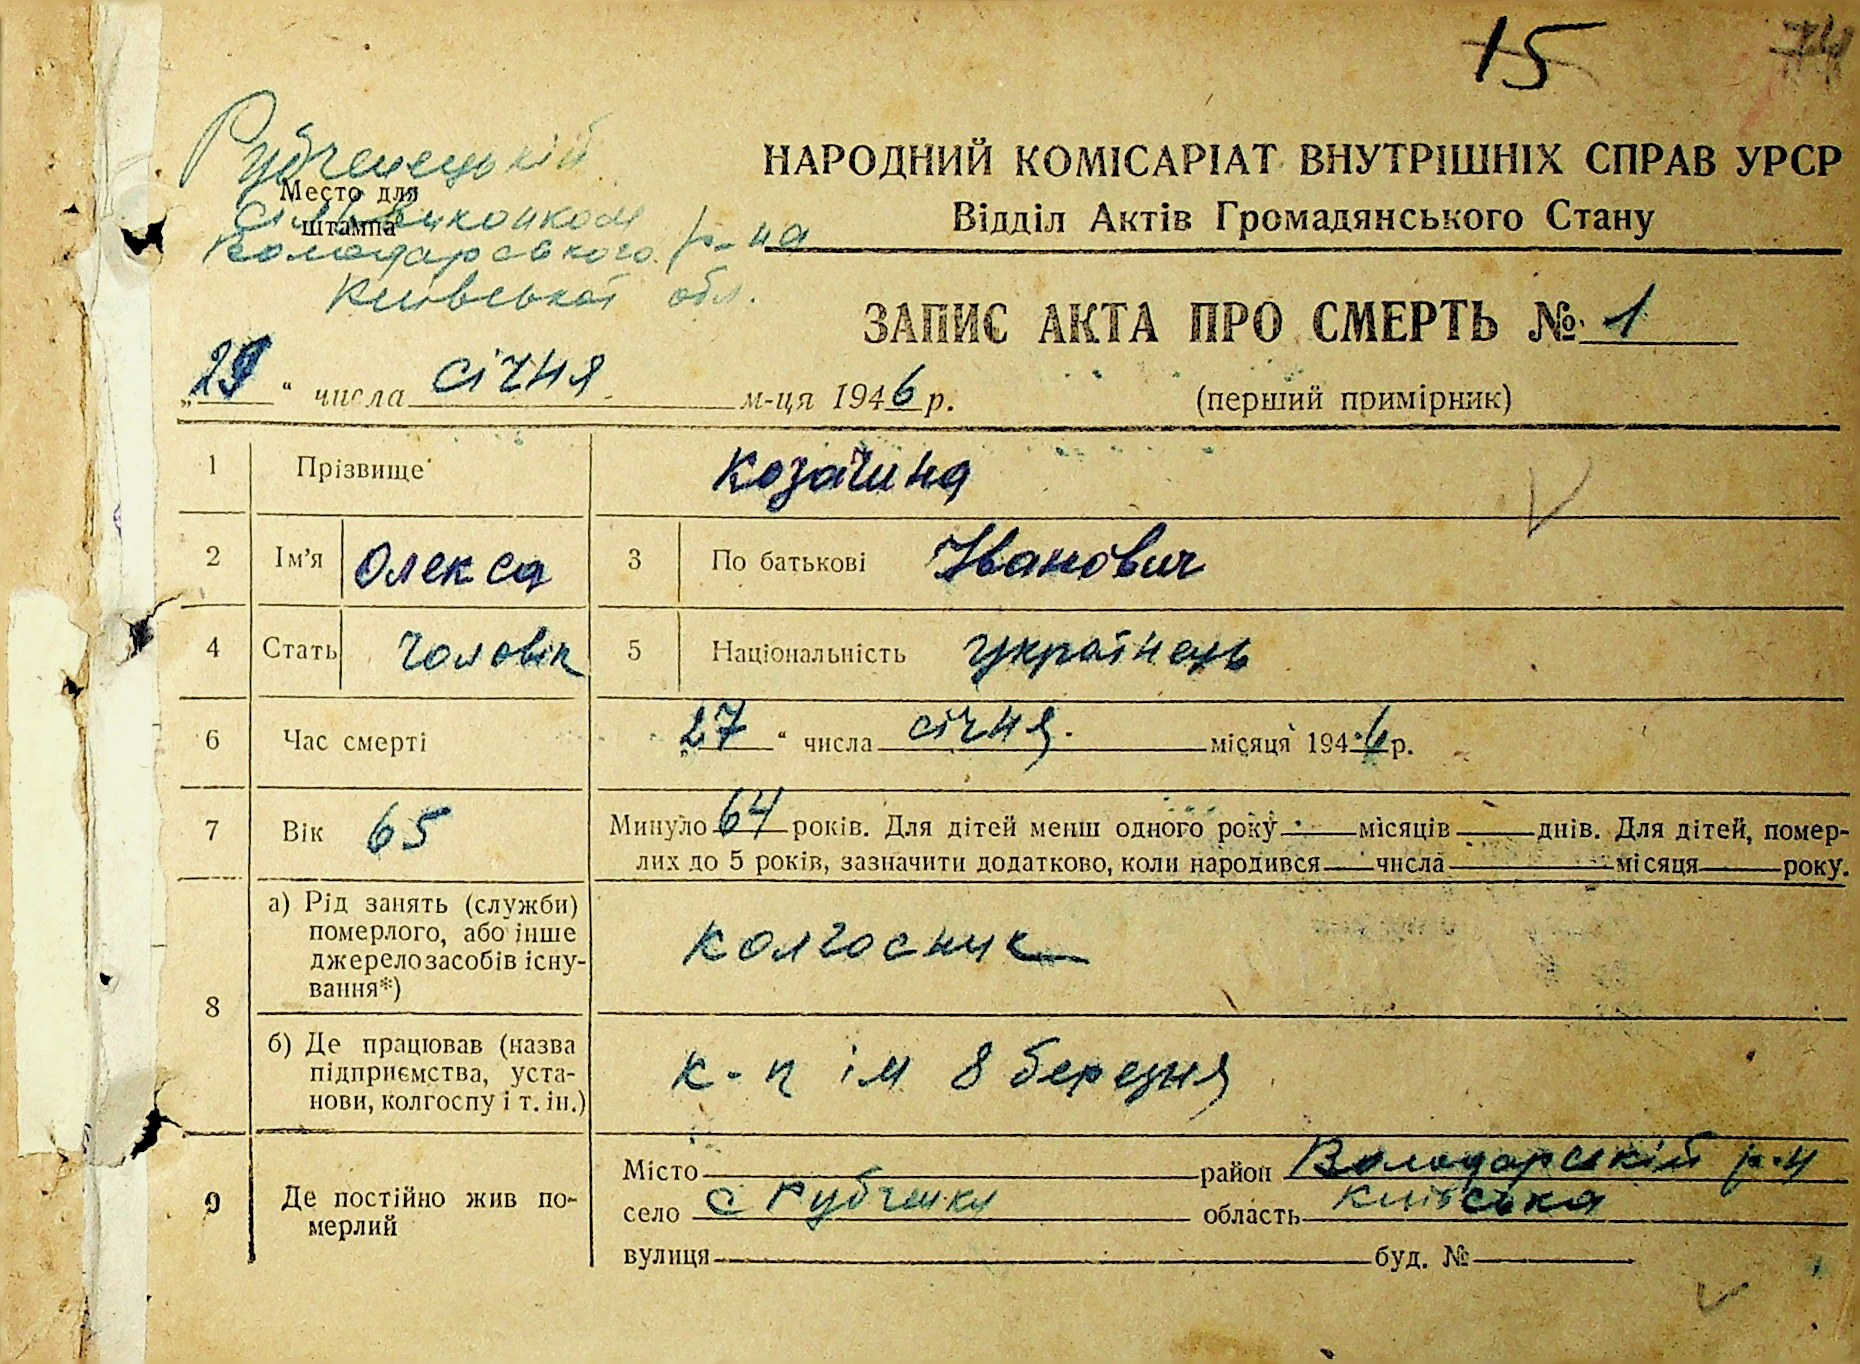 15
Рубченецькій
Место для
штампа
сільвиконком
Володарського р-на
Київської обл.
НАРОДНИЙ КОМІСАРІАТ ВНУТРІШНІХ СПРАВ УРСР
Відділ Актів Громадянського Стану
ЗАПИС АКТА ПРО СМЕРТЬ № 1
„29“ числа січня м-ця 1946 р.
(перший примірник)
1 Прізвище Козачина
2 Ім’я Олекса 3 По батькові Іванович
4 Стать чоловік 5 Національність українець
6 Час смерті „27“ числа січня місяця 1946 р.
7 Вік 65 Минуло 64 років. Для дітей менш одного року місяців днів. Для дітей, помер-
лих до 5 років, зазначити додатково, коли народився числа місяця року.
8 а) Рід занять (служби)
померлого, або інше
джерело засобів існу-
вання*)
колгосник
б) Де працював (назва
підприємства, уста-
нови, колгоспу і т. ін.)
к-п ім 8 березня
9 Де постійно жив по-
мерлий
Місто район Володарській р-н
село с Рубченки область київська
вулиця буд. №